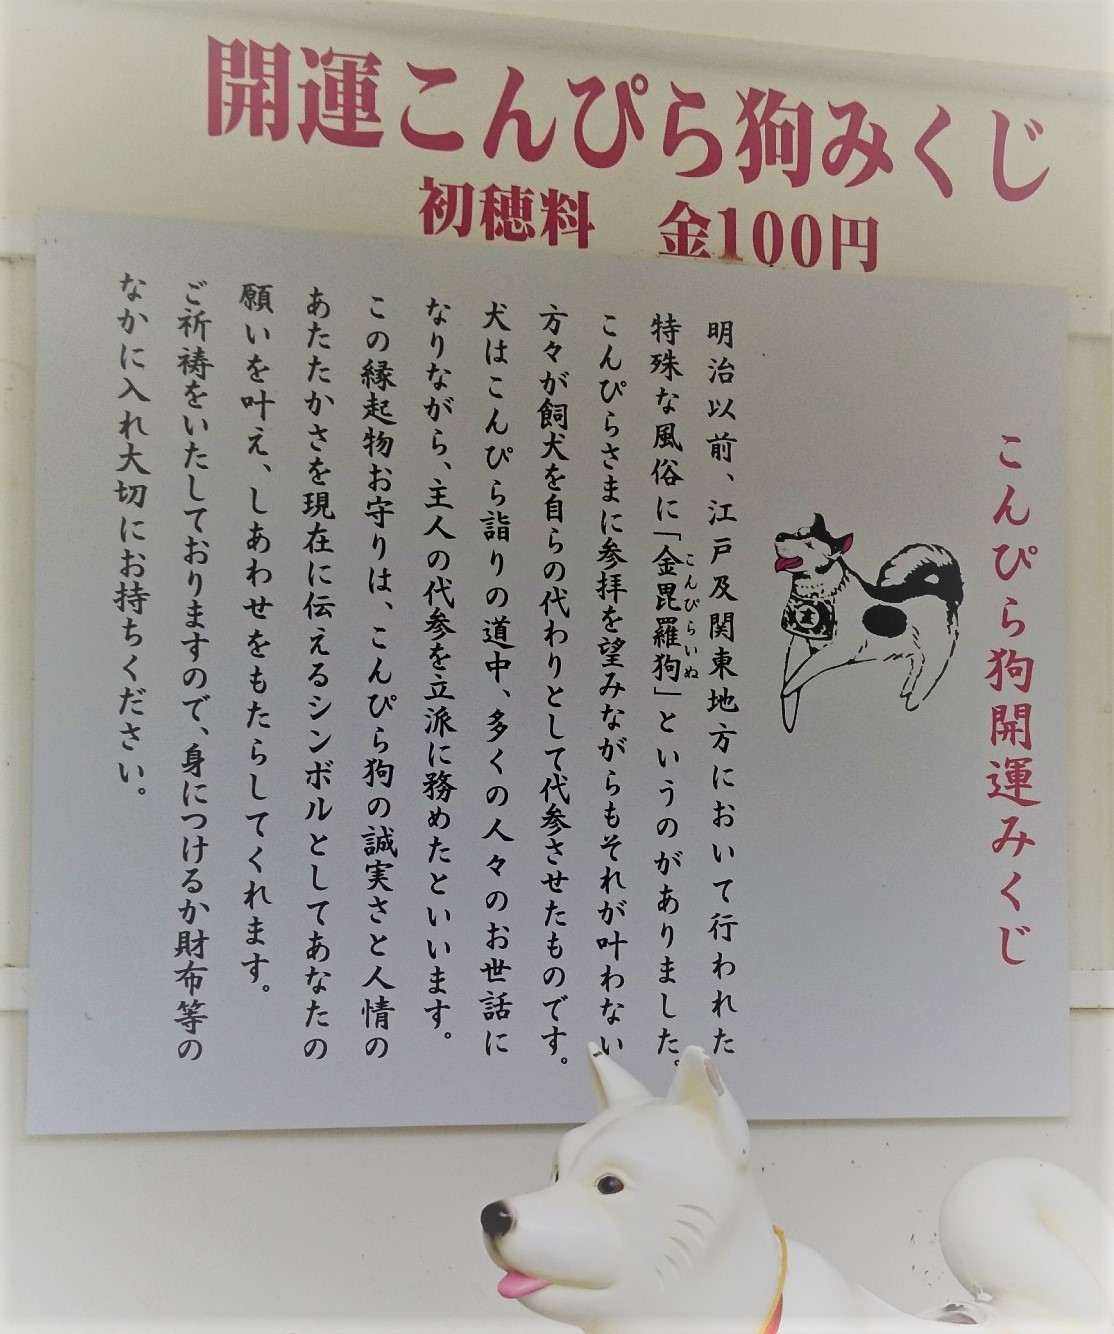 開運こんぴら狗みくじ
初穂料　金100円
こんぴら狗開運みくじ
明治以前、江戸及関東地方において行われた
特殊な風俗に「金毘羅狗」というのがありました。
こんぴらいぬ
こんぴらさまに参拝を望みながらもそれが叶わない
方々が飼犬を自らの代わりとして代参させたものです。
犬はこんぴら詣りの道中、多くの人々のお世話に
なりながら、主人の代参を立派に務めたといいます。
この縁起物お守りは、こんぴら狗の誠実さと人情の
あたたかさを現在に伝えるシンボルとしてあなたの
願いを叶え、しあわせをもたらしてくれます。
ご祈祷をいたしておりますので、身につけるか財布等の
なかに入れ大切にお持ちください。